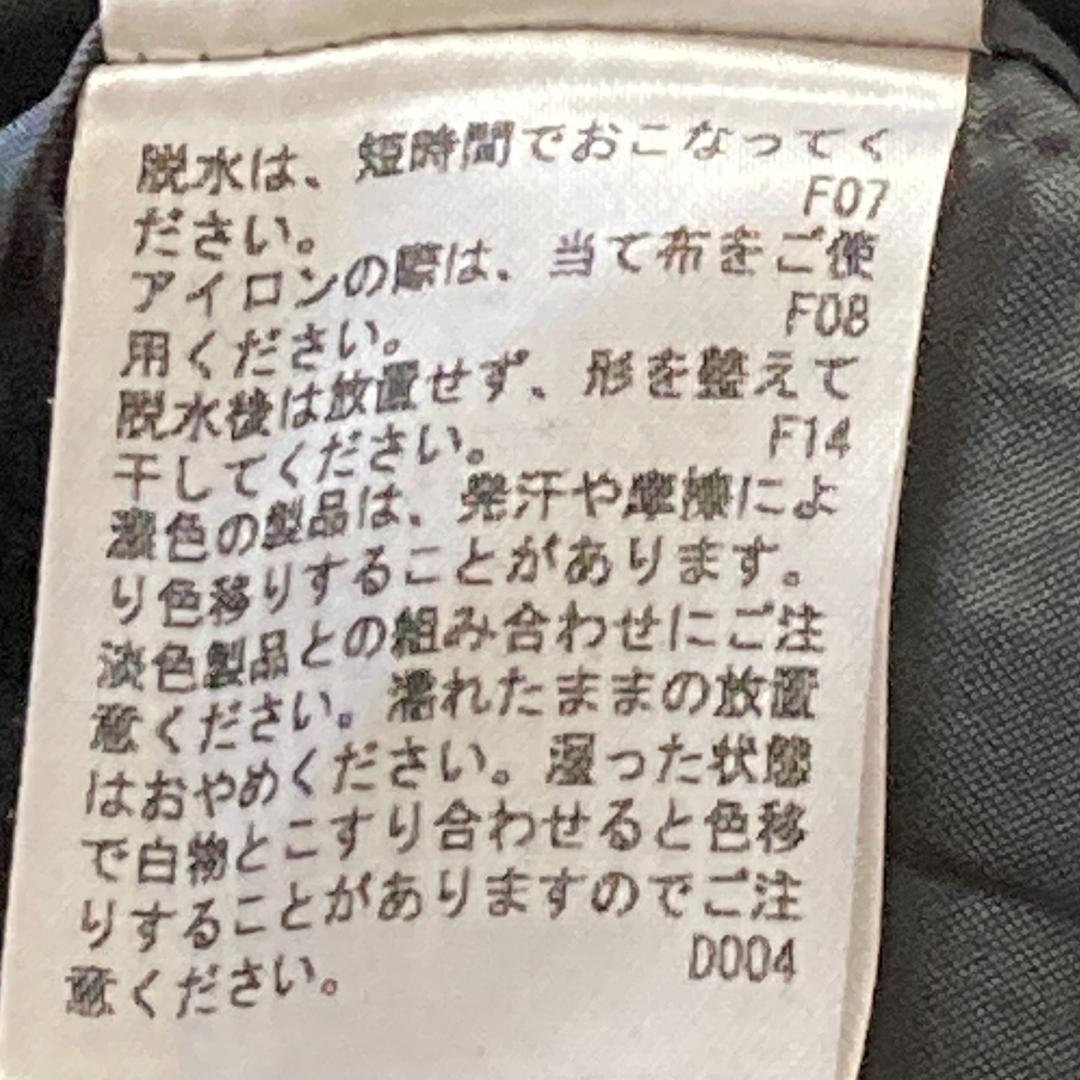 脱水は、短時間でおこなってく
ださい。 F07
アイロンの際は、当て布をご使
用ください。 F08
脱水後は放置せず、形を整えて
干してください。 F14
濃色の製品は、発汗や摩擦によ
り色移りすることがあります。
淡色製品との組み合わせにご注
意ください。濡れたままの放置
はおやめください。湿った状態
で白物とこすり合わせると色移
りすることがありますのでご注
意ください。 D004